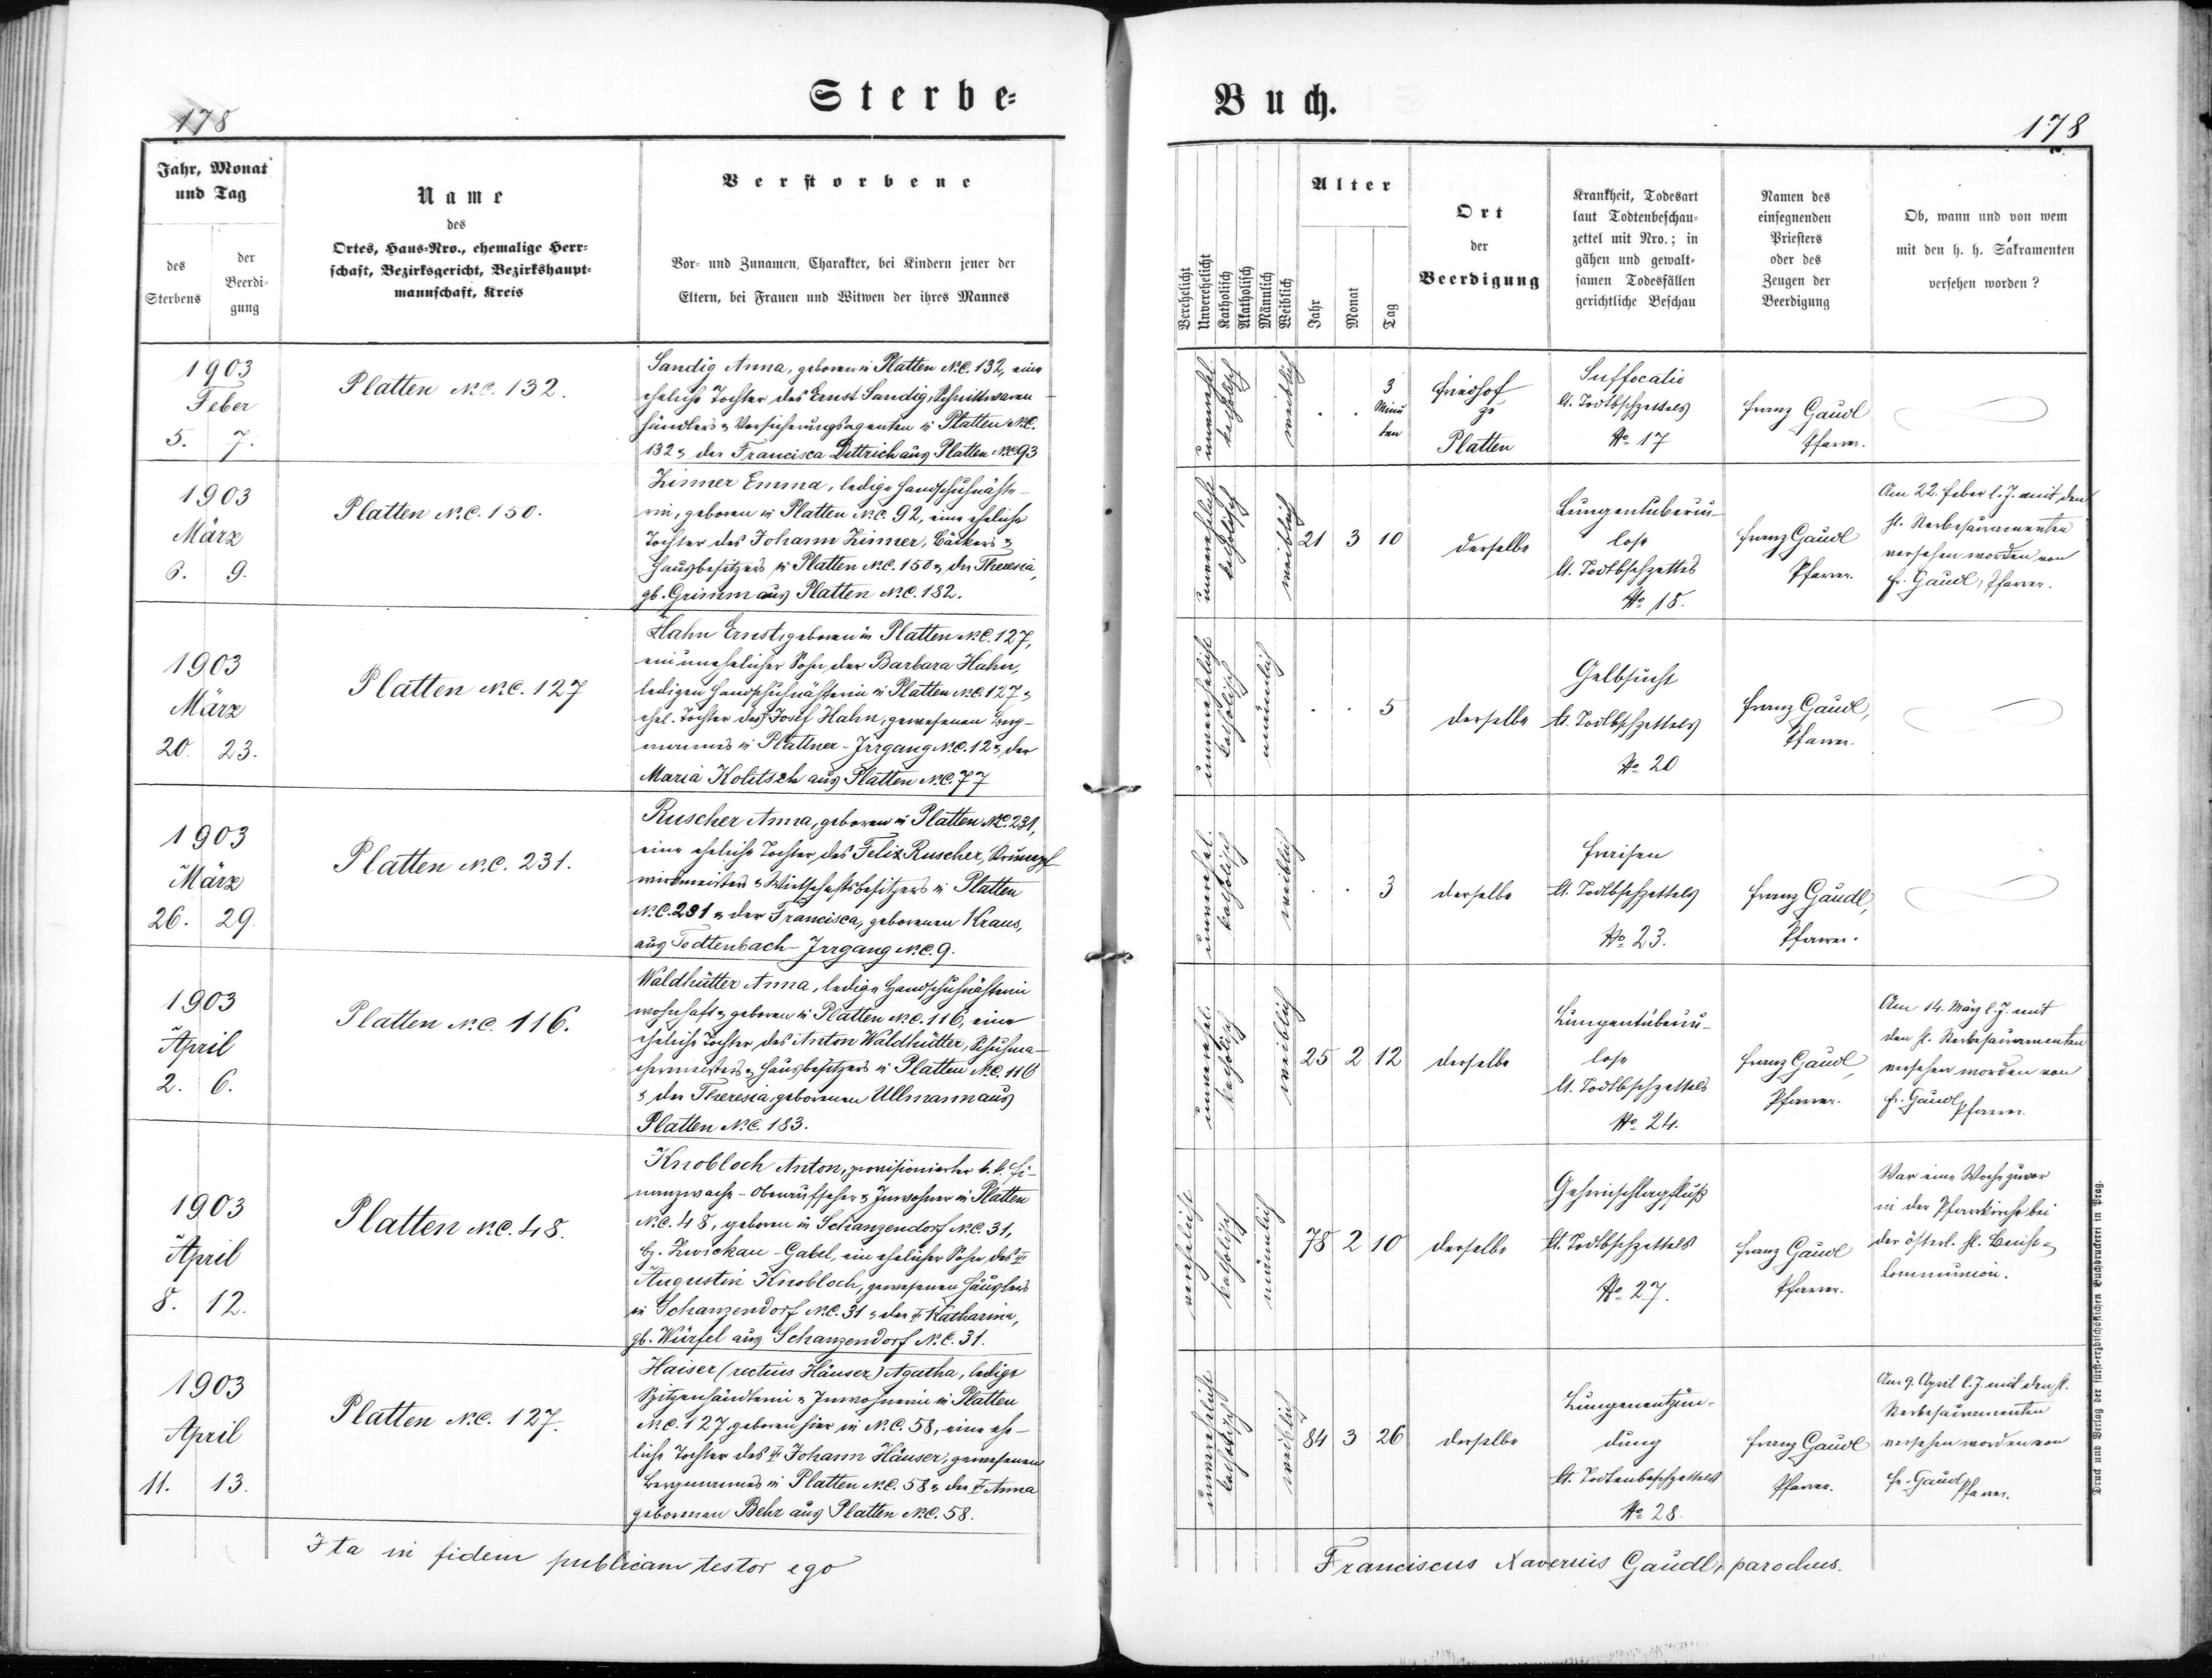 Sterbe=
178
Jahr, Monat
und Tag
des
Sterbens
der
Beerdi=
gung
Name
des
Ortes, Haus-Nro., ehemalige Herr=
schaft, Bezirksgericht, Bezirkshaupt=
mannschaft, Kreis
Verstorbene
Vor- und Zunamen, Charakter, bei Kindern jener der
Eltern, bei Frauen und Witwen der ihres Mannes
1903
Feber
5. 7.
Platten N.C. 132.
Sandig Anna, geboren in Platten N.C. 132, eine
eheliche Tochter des Ernst Sandig, Schnittwaren-
händlers & Versicherungsagenten in Platten N.C.
132 & der Francisca Dittrich aus Platten N.C. 93
1903
März
6. 9.
Platten N.C. 150.
Zinner Emma, ledige Handschuhnähte-
rin, geboren in Platten N.C. 92, eine eheliche
Tochter des Johann Zinner, Bäckers &
Hausbesitzers in Platten N.C. 150 & der Theresia,
gb. Grimm aus Platten N.C. 182.
1903
März
20. 23.
Platten N.C. 127
Hahn Ernst, geboren in Platten N.C. 127,
ein unehelicher Sohn der Barbara Hahn,
ledigen Handschuhnähterin in Platten N.C. 127 &
ehel. Tochter des Josef Hahn, gewesenen Berg-
mannes in Plattner-Irrgang N.C. 12 & der
Maria Kolitsch aus Platten N.C. 77
1903
März
26. 29.
Platten N.C. 231.
Ruscher Anna, geboren in Platten N.C. 231,
eine eheliche Tochter des Felix Ruscher, Strumpf-
wirkmeisters & Wirtschaftsbesitzers in Platten
N.C. 231 & der Francisca, geborenen Kraus,
aus Todtenbach-Irrgang N.C. 9.
1903
April
2. 6.
Platten N.C. 116.
Waldhütter Anna, ledige Handschuhnähterin
wohnhaft & geboren in Platten N.C. 116, eine
eheliche Tochter des Anton Waldhütter, Schuhma-
chermeisters & Hausbesitzers in Platten N.C. 116
& der Theresia, geborenen Ullmann aus
Platten N.C. 183.
1903
April
8. 12.
Platten N.C. 48.
Knobloch Anton, provisionierter k. k. Fi-
nanzwach-Oberaufseher & Inwohner in Platten
N.C. 48, geboren in Schanzendorf N.C. 31,
Bz. Zwickau-Gabel, ein ehelicher Sohn des †
Augustin Knobloch, gewesenen Häuslers
in Schanzendorf N.C. 31 & der † Katharina,
gb. Würfel aus Schanzendorf N.C. 31.
1903
April
11. 13.
Platten N.C. 127.
Haiser (rectius Häuser) Agatha, ledige
Spitzenhändlerin & Inwohnerin in Platten
N.C. 127, geboren hier in N.C. 58, eine ehe-
liche Tochter des † Johann Häuser, gewesenen
Bergmannes in Platten N.C. 58 & der † Anna
geborenen Behr aus Platten N.C. 58.
Ita in fidem publicam testor ego
Buch.
178
Verehelicht
Unverehelicht
Katholisch
Akatholisch
Männlich
Weiblich
Alter
Jahr
Monat
Tag
Ort
der
Beerdigung
Krankheit, Todesart
laut Todtenbeschau=
zettel mit Nro.; in
gähen und gewalt=
samen Todesfällen
gerichtliche Beschau
Namen des
einsegnenden
Priesters
oder des
Zeugen der
Beerdigung
Ob, wann und von wem
mit den h. h. Sakramenten
versehen worden?
unverehel.
katholisch
weiblich
. . 3
Minu
ten
Friedhof
zu
Platten
Suffocatio
lt. Todtbschzettels
No 17
Franz Gaudl
Pfarrer.
unverehelicht
katholisch
weiblich
21 3 10
derselbe
Lungentuberku-
lose
lt. Todtbschzettels
No 18.
Franz Gaudl
Pfarrer.
Am 22. Feber l. J. mit den
hl. Sterbesakramenten
versehen worden von
Fr. Gaudl, Pfarrer.
unverehelicht
katholisch
männlich
. . 5
derselbe
Gelbsucht
lt. Todtbschzettels
No 20
Franz Gaudl,
Pfarrer.
unverehel.
katholisch
weiblich
. . 3
derselbe
Fraisen
lt. Todtbschzettels
No 23.
Franz Gaudl,
Pfarrer.
unverehel.
katholisch
weiblich
25 2 12
derselbe
Lungentuberku-
lose
lt. Todtbschzettels
No 24.
Franz Gaudl,
Pfarrer.
Am 14. März l. J. mit
den hl. Sterbesakramenten
versehen worden von
Fr. Gaudl Pfarrer.
verehelicht
katholisch
männlich
78 2 10
derselbe
Gehirnschlagfluß
lt. Todtbschzettels
No 27.
Franz Gaudl
Pfarrer.
War eine Woche zuvor
in der Pfarrkirche bei
der österl. hl. Beicht &
Communion.
unverehelicht
katholisch
weiblich
84 3 26
derselbe
Lungenentzün-
dung
lt. Todtenbeschzettels
No 28.
Franz Gaudl
Pfarrer.
Am 9. April l. J. mit den hl.
Sterbesakramenten
versehen worden von
Fr. Gaudl Pfarrer.
Franciscus Xaverius Gaudl, parochus.
Druck und Verlag der fürst-erzbischöflichen Buchdruckerei in Prag.